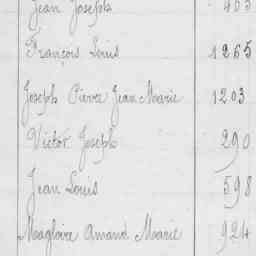 Jean Joseph 463
François Louis 1265
Joseph Pierre Jean Marie 1203
Victor Joseph 290
Jean Louis 598
Magloire Amand Marie 924